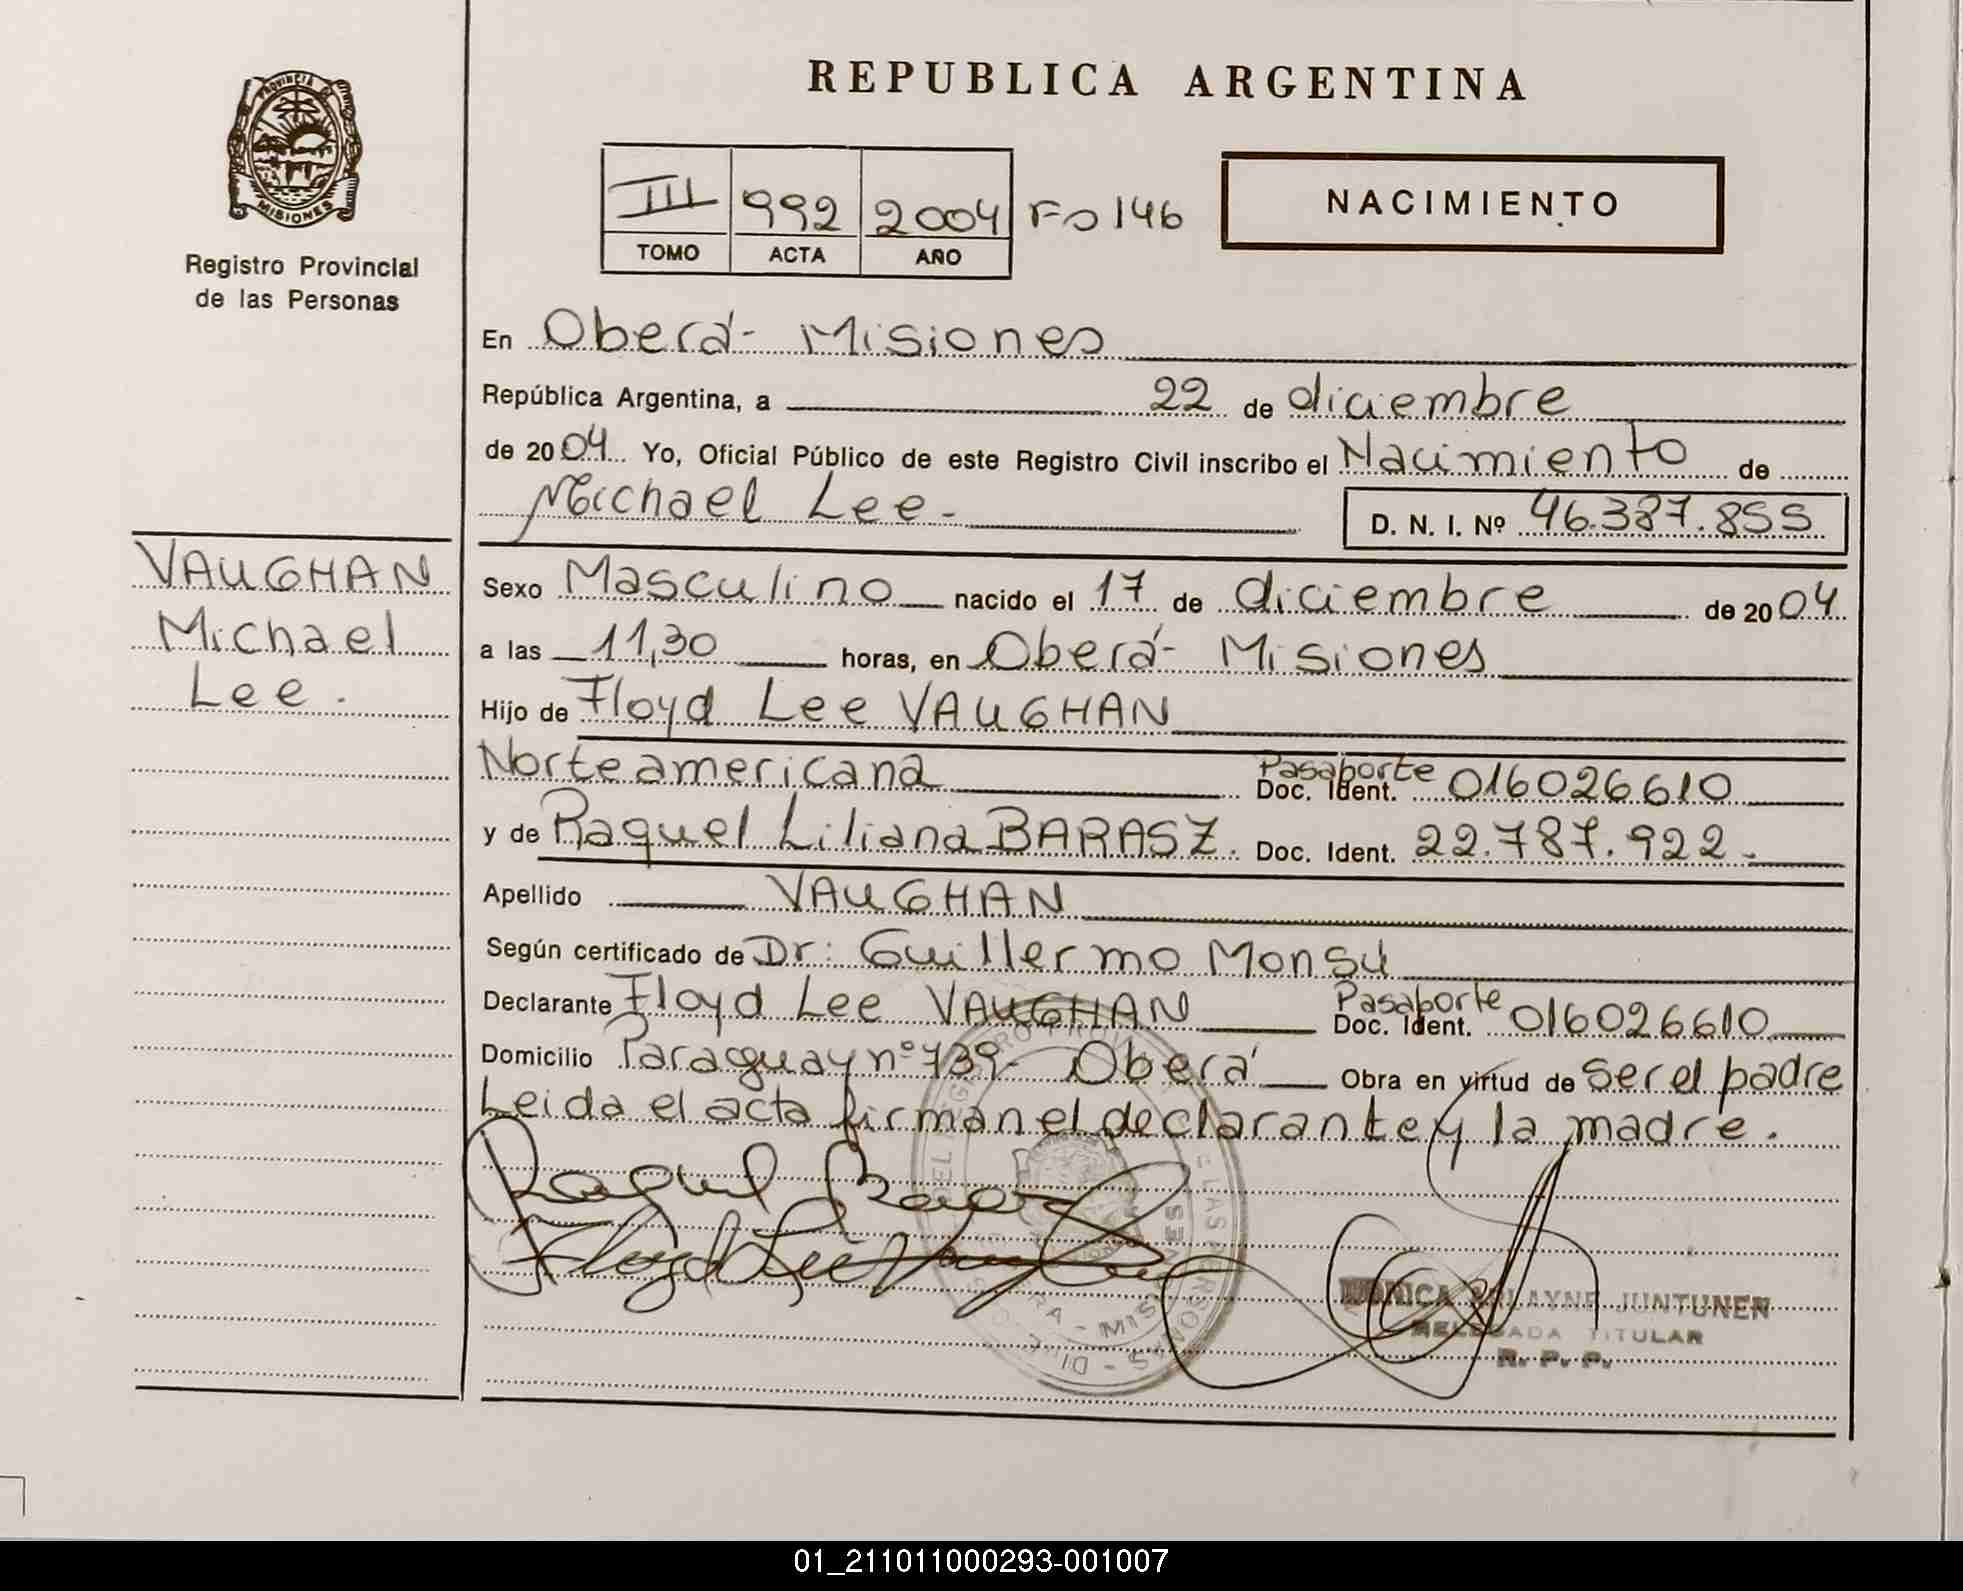 REPUBLICA ARGENTINA
PROVINCIA DE
MISIONES
Registro Provincial
de las Personas
III 992 2004 Fo 146
TOMO ACTA AÑO
NACIMIENTO
En Oberá - Misiones
República Argentina, a 22 de diciembre
de 2004 Yo, Oficial Público de este Registro Civil inscribo el Nacimiento de
Michael Lee.- D. N. I. Nº 46.387.855
VAUGHAN
Michael
Lee.
Sexo Masculino nacido el 17 de diciembre de 2004
a las 11,30 horas, en Oberá - Misiones
Hijo de Floyd Lee VAUGHAN
Norteamericana Pasaporte Doc. Ident. 016026610
y de Raquel Liliana BARASZ. Doc. Ident. 22.787.922.-
Apellido VAUGHAN
Según certificado de Dr: Guillermo Monsú
Declarante Floyd Lee VAUGHAN Pasaporte Doc. Ident. 016026610
Domicilio Paraguay nº 739- Oberá Obra en virtud de Ser el padre
Leida el acta firman el declarante y la madre.
Raquel Barasz
Floyd Lee Vaughan
JUNTUNEN
TITULAR
R. P. P.
01_211011000293-001007